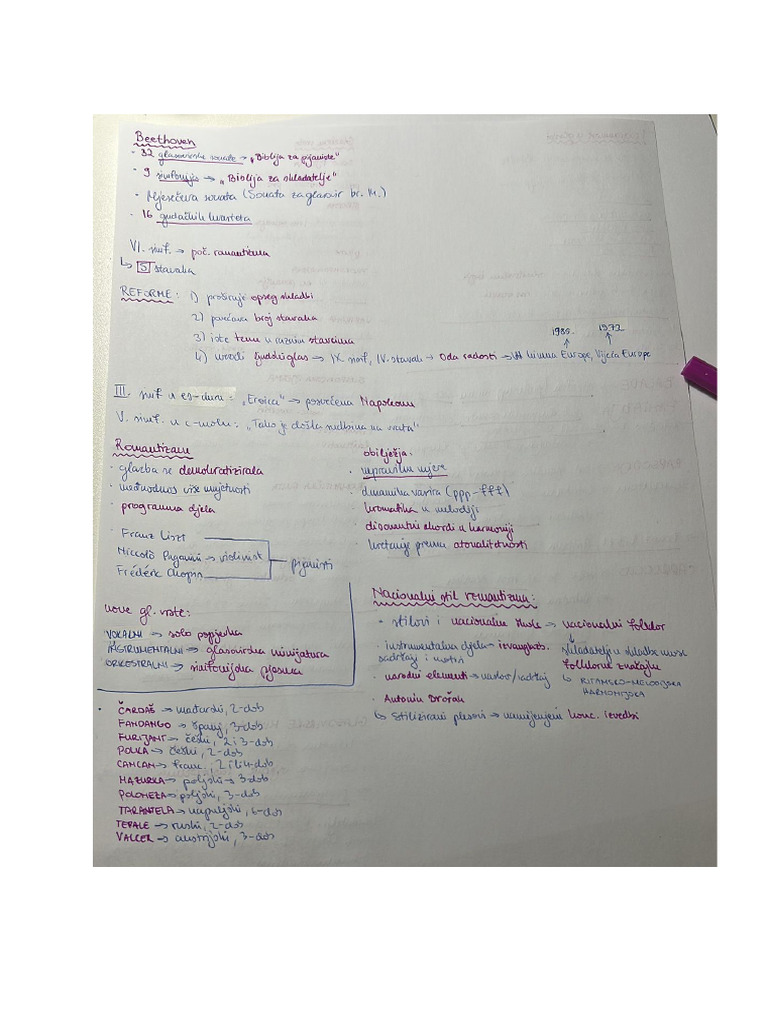 Beethoven
· 32 glasovirske sonate → „Biblija za pijaniste"
· 9 simfonija → „Biblija za skladatelje"
· Mjesečeva sonata (Sonata za glasovir br. 14.)
· 16 gudačkih kvarteta
VI. simf. → poč. romantizma
↳ 5 stavaka
REFORME: 1) proširuje opseg skladbi
2) povećava broj stavaka
3) iste teme u raznim stavcima
1985. 1972.
4) uvodi ljudski glas → IX. simf, IV. stavak → Oda radosti → himna Europe, Vijeća Europe
III. simf u es-duru: „Eroica" → posvećena Napoleonu
V. simf. u c-molu: „Tako je došla sudbina na vrata"
Romantizam
· glazba se demokratizirala
· međuodnos više umjetnosti
· programna djela
· Franz Liszt
Niccolò Paganini → violinist
Frédéric Chopin
pijanisti
obilježja:
· nepravilne mjere
dinamika varira (ppp-fff)
kromatika u melodiji
disonantni akordi u harmoniji
kretanje prema atonalitetnosti
nove gl. vrste:
VOKALNI → solo popijevka
INSTRUMENTALNI → glasovirska minijatura
ORKESTRALNI → simfonijska pjesma
Nacionalni stil romantizma:
· stilovi i nacionalne škole → nacionalni folklor
· instrumentalna djela - izvanglazb. sadržaji i motivi
skladatelji u skladbe unose folklorne značajke
↳ RITAMSKO-MELODIJSKA HARMONIJSKA
· narodni elementi → naslov/sadržaj
Antonín Dvořák
↳ Stilizirani plesovi → namijenjeni konc. izvedbi
· ČARDAŠ → mađarski, 2-dob
FANDANGO → španj, 3-dob
FURIJANT → češki, 2 i 3-dob
POLKA → češki, 2-dob
CANCAN → franc., 2 ili 4-dob
MAZURKA → poljski → 3-dob
POLONEZA → poljski, 3-dob
TARANTELA → napuljski, 6-dob
TREPAK → ruski, 2-dob
VALCER → austrijski, 3-dob